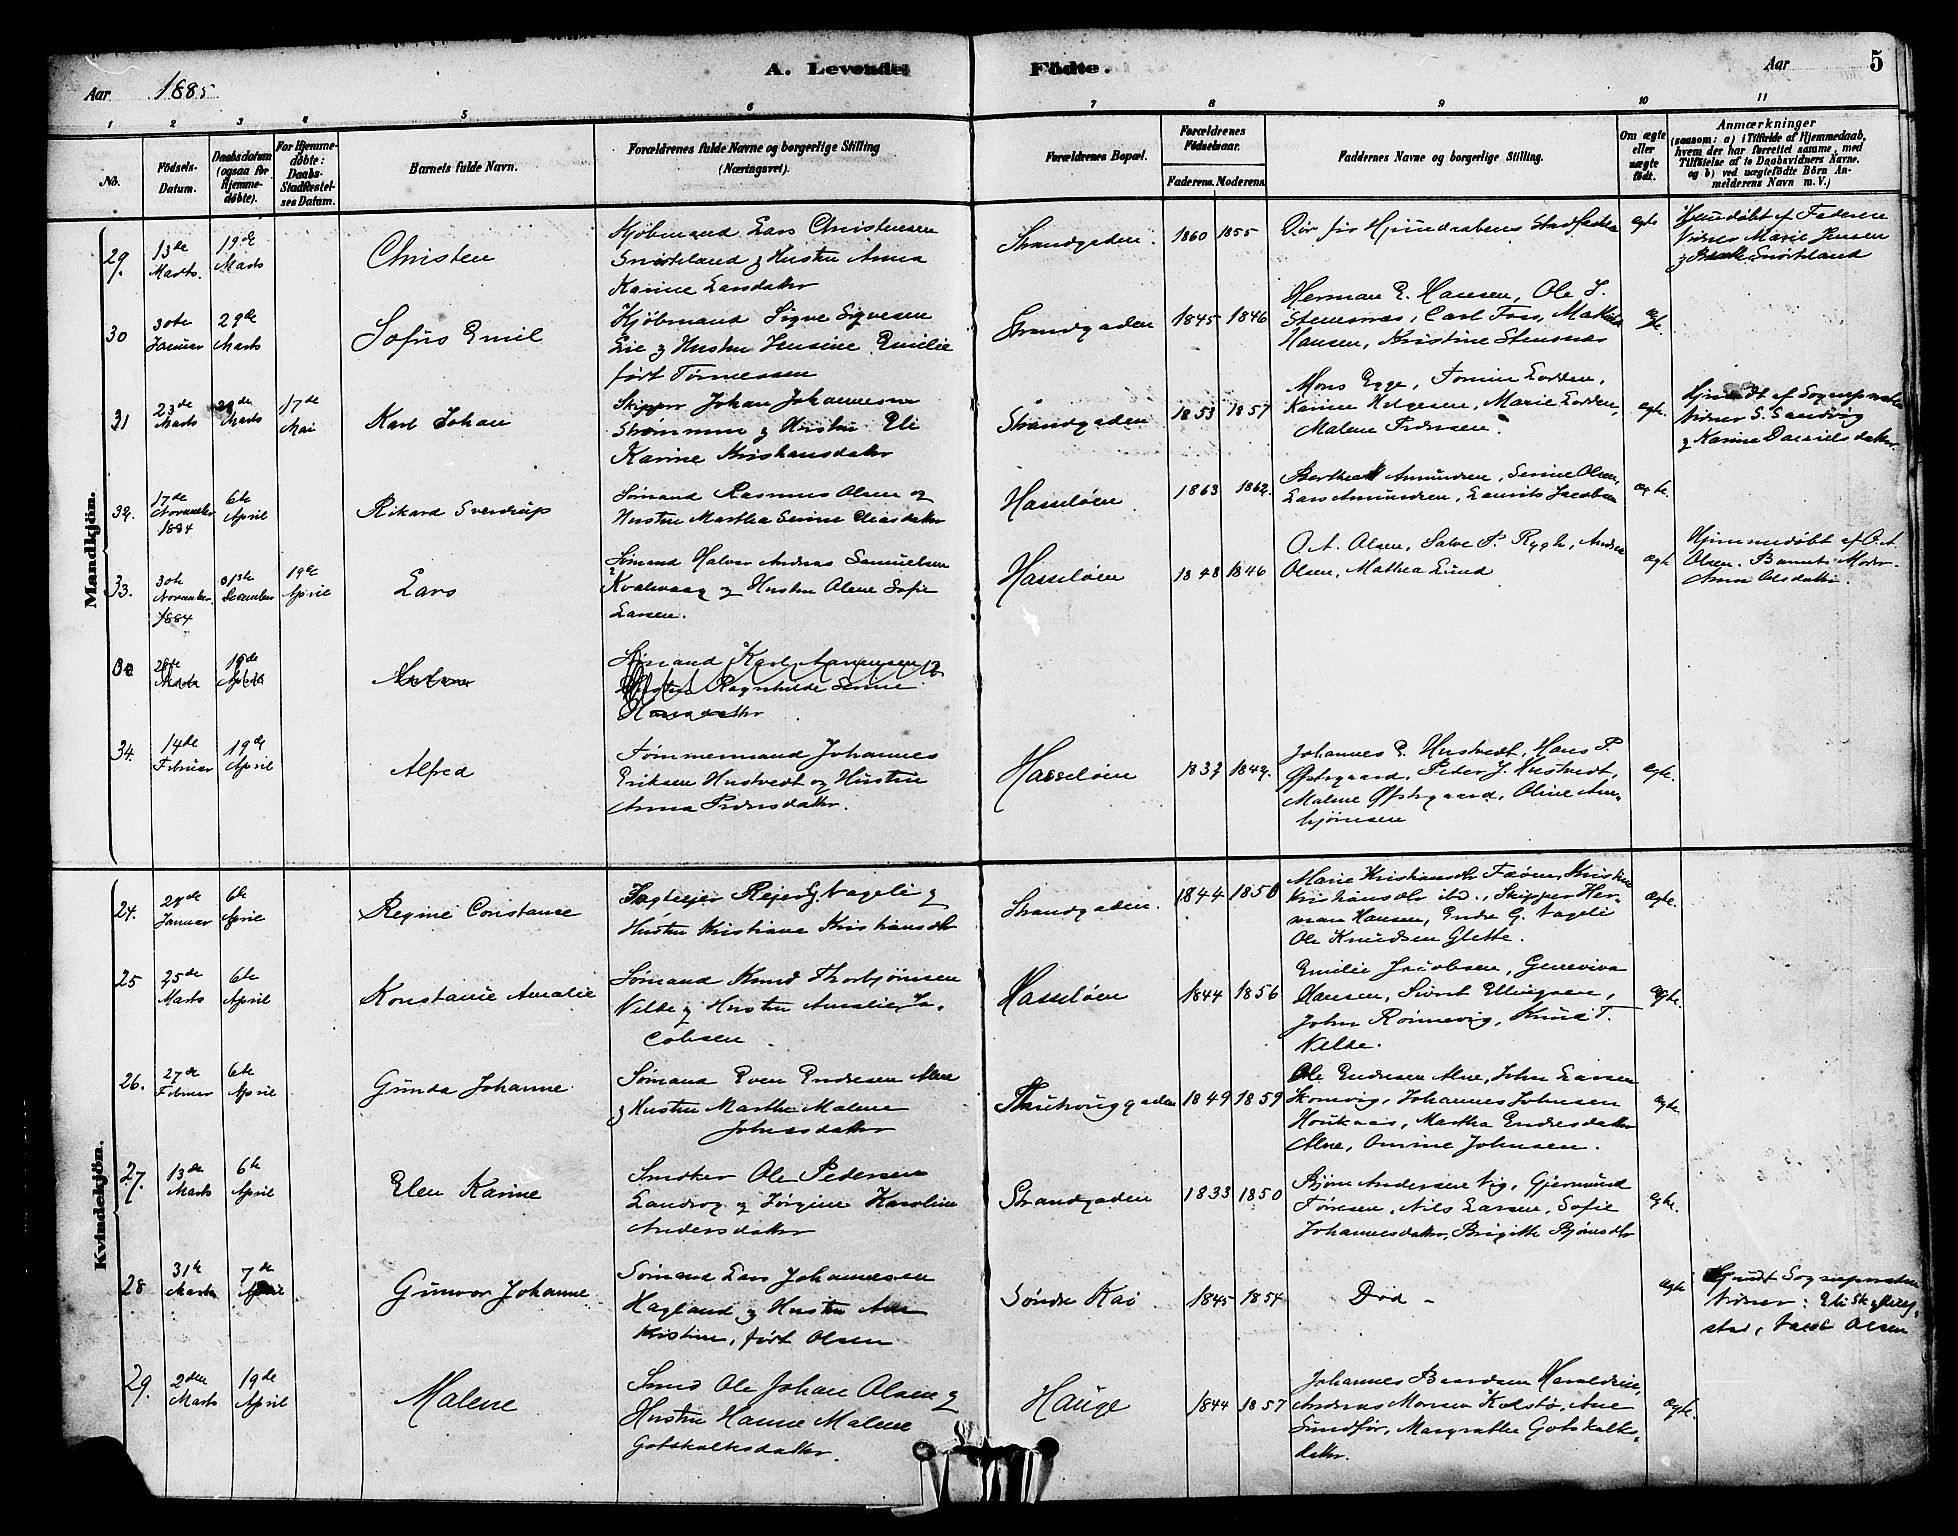 A. Levende Födte.
5
Aar 1885
Aar
1 2 3 4 5 6 7 8 9 10 11
No.
Födsels-
Datum.
Daabsdatum
(ogsaa for
Hjemme-
døbte).
For Hjemme-
døbte:
Daabs-
Stadfæstel-
ses Datum.
Barnets fulde Navn.
Forældrenes fulde Navne og borgerlige Stilling
(Næringsvei).
Forældrenes Bopæl.
Forældrenes
Födselsaar.
Faderens. Moderens.
Faddernes Navne og borgerlige Stilling.
Om ægte
eller
uægte
født.
Anmærkninger
(saasom: a) i Tilfælde af Hjemmedaab,
hvem der har forrettet samme, med
Tilföielse af to Daabsvidners Navne,
og b) ved uægtefödte Börn An-
melderens Navn m. V.)
Mandkjön.
29.
13de
Marts.
19de
Marts
Christen
Kjöbmand Lars Christensen
Snorteland & Hustru Anna
Karine Larsdatter
Strandgaden.
1860 1855
Død før Hjemdaabens Stadfæstelse
ægte
Hjemdøbt af Faderen
Vidner Marie Jensen
Snorteland
30
30te
Januar
29de
Marts
Sofus Emil
Kjöbmand Sigve Sigvesen
Lie & Hustru Jensine Emilie
født Tørnessen
Strandgaden
1845 1846
Herman E. Hansen, Ole J.
Stensnæs, Carl Foss, Mathilde
Hansen, Kristine Stensnæs
ægte
31
23de
Marts
29de
Marts
17de
Mai
Karl Johan
Skipper Johan Johannesen
Strømmen & Hustru Eli
Karine Kristiansdatter
Strandgaden
1853 1857
Mons Egge, Tomine Lodden,
Karine Helgesen, Marie Lodden,
Malene Pedersen.
ægte.
Hjemdt af Sognepræsten
Vidner S. Sandvig
& Karine Danielsdatter.
32.
17de
November
1884
6te
April
Rikard Sverdrup
Sømand Rasmus Olsen og
Hustru Martha Serine Eliasdatter
Hasseløen
1863 1862.
Berthea Amundsen, Serine Olsen,
Lars Amundsen, Laurits Jacobsen
ægte.
33.
30te
November
1884
31te
December
19de
April
Lars
Sømand Halvor Andreas Samuelsen
Kvalevaag & Hustru Olene Sofie
Larsen.
Hasseløen
1848 1846
O. A. Olsen, Salve P. Rygh, Andrea
Olsen, Mathea Lund
ægte
Hjemmedøbt af O. A.
Olsen. Barnets Moder
Anna Olsdatter.
19de
April
Sømand Karl
Hustru Ragnhilde Serine
Hansdatter
34.
14de
Februar
19de
April
Alfred
Tømmermand Johannes
Eriksen Hustvedt og Hustru
Anna Pedersdatter.
Hasseløen
1832 1842.
Johannes E. Hustvedt, Hans P.
Østegaard, Peder J. Hustvedt,
Malene Østegaard, Oline Am-
bjørnsen
ægte.
Kvindekjön.
24.
Januar
6te
April
Regine Constance
Jagteejer Rejer G. Vageli &
Hustru Kristiane Kristiansdtr
Strandgaden.
1844 1850
Marie Kristiansdtr Fæøen, Kristine
Kristiansdtr ibd., Skipper Her-
man Hansen, Endre G. Vageli
Ole Knudsen Glette.
ægte.
25
25de
Marts
6te
April
Konstanse Amalie
Sømand Knud Thorbjørnsen
Velde & Hustru Amalie Ja-
cobsen
Hasseløen
1844 1856
Emilie Jacobsen, Geneviva
Hansen, Sivert Ellingsen,
John Rønnevig, Knud T.
Velde.
ægte.
26.
27de
Februar
6te
April
Gunda Johanne
Sømand Even Endresen Alne
& Hustru Marthe Malene
Johnsdatter
1849 1859
Ole Endresen Alne, John Larsen
Johannes Johnsen
Houkaas, Martha Endresdatter
Alne, Omine Johnsen.
ægte.
27.
13de
Marts
6te
April
Elen Karine
Snedker Ole Pedersen
& Jørgine Karoline
Andersdatter
Strandgaden
1833 1850
Bjørn Andersen Vig, Gjermund
Tøresen, Nils Larsen, Sofie
Johannesdatter, Brigitte Bjørnsdtr
ægte.
28
31te
Marts
7de
April
Gunvor Johanne
Sømand Lars Johannesen
Hagland & Hustru Ane
Kristine, født Olsen
Søndre Kai.
1845 1854
Død -
ægte
Hjemdt Sognepræsten
Vidner: Eli
stad, Olsen
29.
2den
Marts
19de
April
Malene
Smed Ole Johan Olsen &
Hustru Hanne Malene
Gotskalksdatter.
Hauge
1844 1857
Johannes Baardsen Haraldseie,
Andreas Monsen Kolstø, Ane
Sundfør, Margrethe Gotskalks-
datter.
ægte.